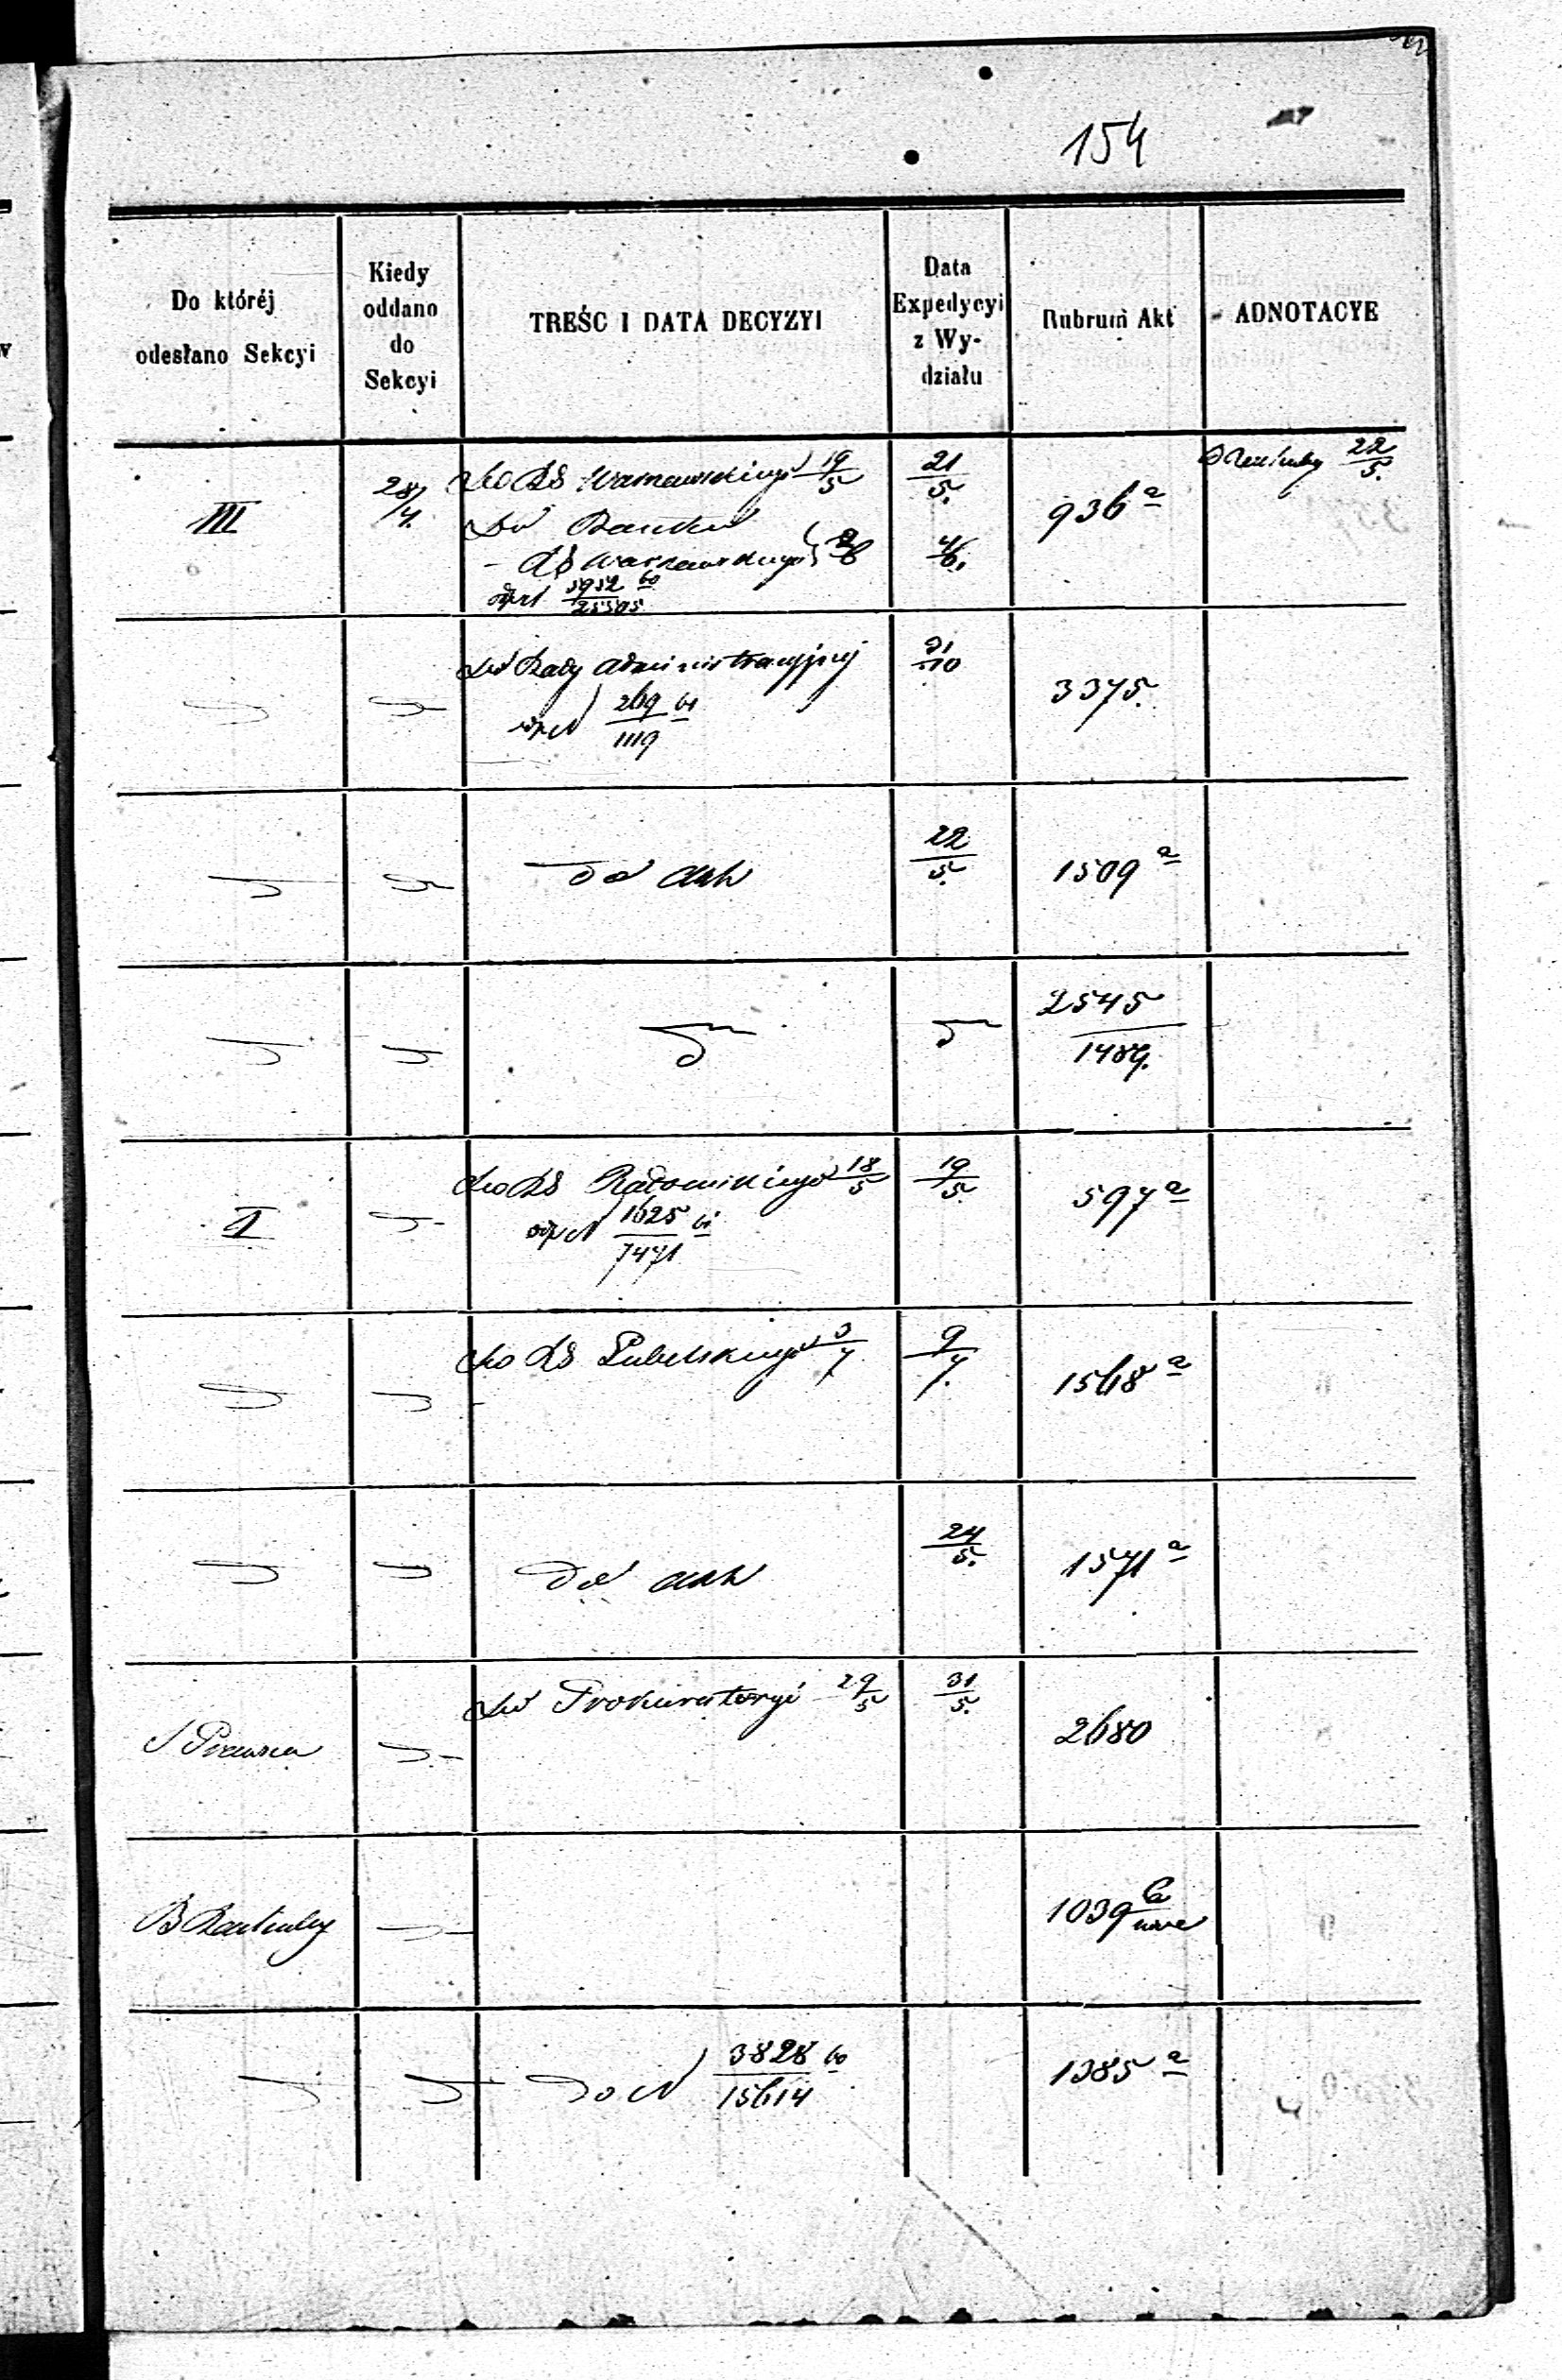 154
Do któréj
odesłano Sekcyi
Kiedy
oddano
do
Sekcyi
TREŚC I DATA DECYZYI
Data
Expedycyi
z Wy-
działu
Rubrum Akt
ADNOTACYE
III
28/4.
Do DS Warszawskiego 19/5
Do Banku
- DS Warszawskiego
odp N 5952/25505
21/5.
4/6.
936 a
22/5.
Do Rady Administracyjnej
odp N 269/1119
21/10
3375.
do akt
22/5.
1509 a
2545/1489.
II
Do DS Radomskiego 18/5
odp N 1625/7471
19/5.
597 a
Do DS Lubelskiego 3/7
9/7.
1568 a
do akt
24/5.
1571 a
S Prawna
Do Prokuratoryi 29/5
31/5.
2680
B Rachuby
1039
do N 3828/15614
1385 a